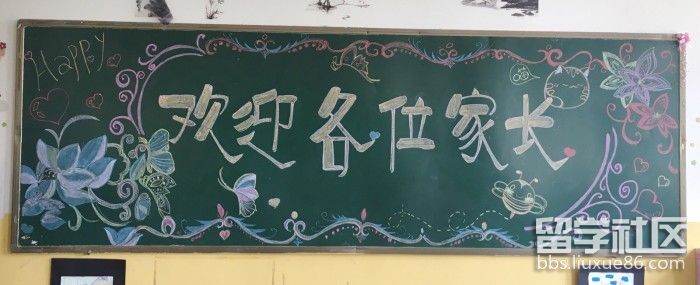 Happy
欢迎各位家长
留学社区
bbs.liuxue86.com